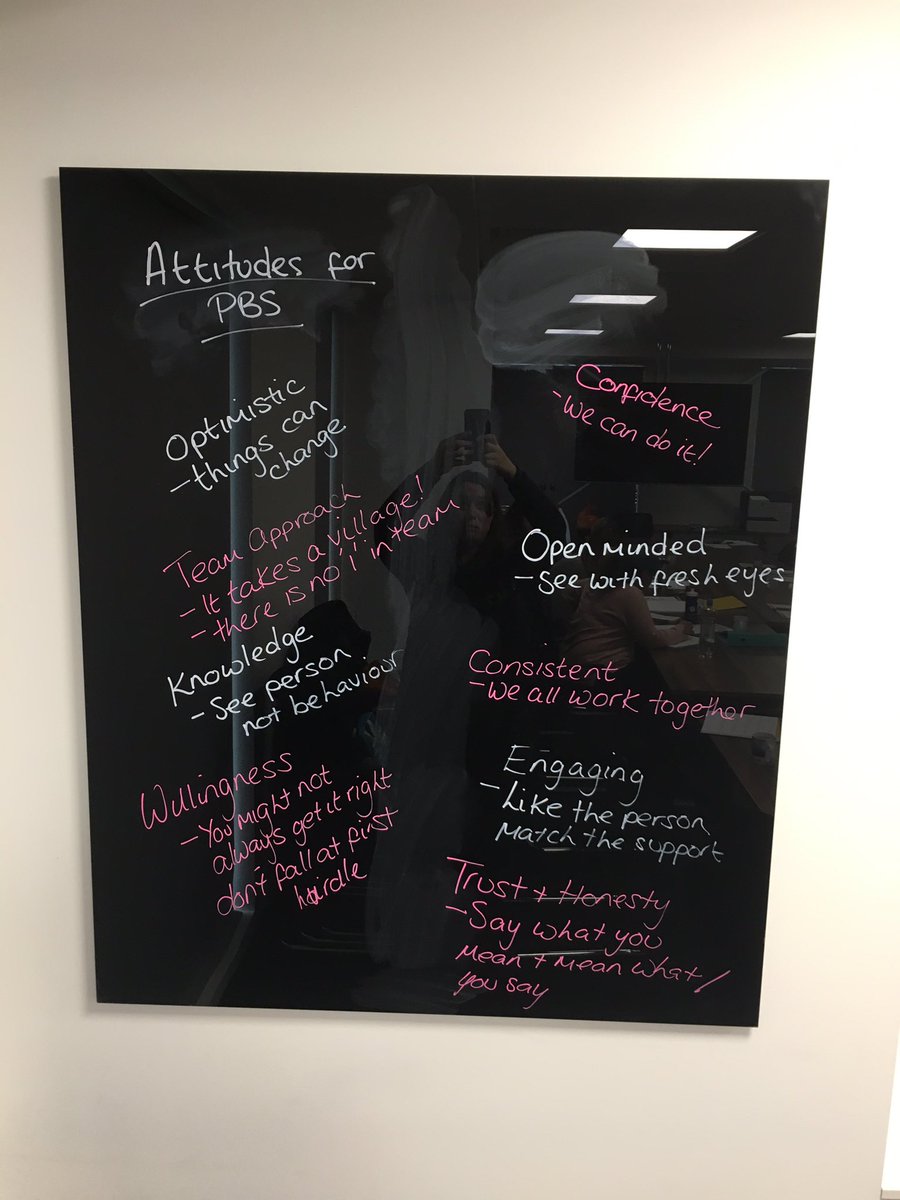 Attitudes for
PBS
Optimistic
- things can
change
Team Approach
- It takes a village!
- there is no 'i' in team
Knowledge
- See person
not behaviour
Willingness
- You might not
always get it right
don't fall at first
hurdle
Confidence
- We can do it!
Open minded
- See with fresh eyes
Consistent
- We all work together
Engaging
- Like the person
Match the support
Trust + Honesty
- Say what you
mean + mean what
you say